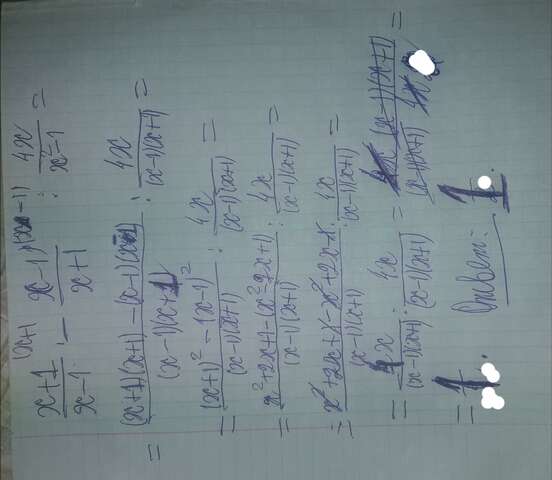 (x+1 (x-1)
x+1/x-1 - x-1/x+1 : 4x/x²-1 =
= (x+1)(x+1)-(x-1)(x-1)/(x-1)(x+1) : 4x/(x-1)(x+1) =
= (x+1)²-(x-1)²/(x-1)(x+1) : 4x/(x-1)(x+1) =
= x²+2x+1-(x²-2x+1)/(x-1)(x+1) : 4x/(x-1)(x+1) =
= x²+2x+1-x²+2x-1/(x-1)(x+1) : 4x/(x-1)(x+1) =
= 4x/(x-1)(x+1) : 4x/(x-1)(x+1) = 4x (x-1)(x+1)/(x-1)(x+1) 4x =
= 1. Ответ: 1.